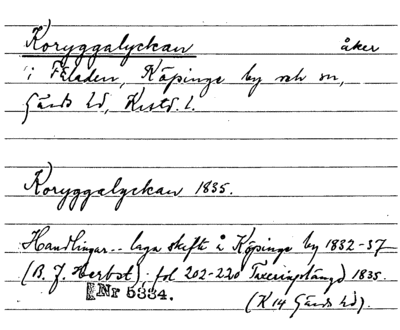 Koryggalyckan åker
i Fäladen, Köpinge by och sn,
Gärds hd, Krstd. l.
Koryggalyckan 1835.
Handlingar.. laga skifte å Köpinge by 1832-37
(B. J. Herbst); fol 202-220 Taxeringslängd 1835.
Nr 5334. (K 14 Gärds hd).